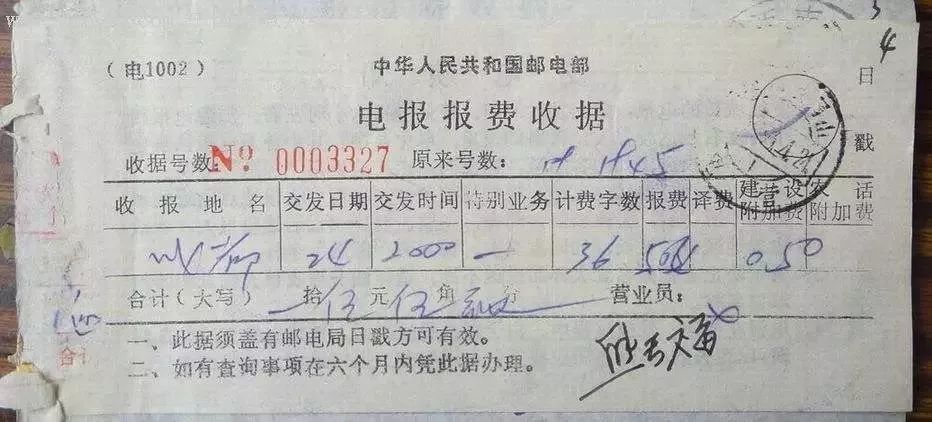 （电1002）
中华人民共和国邮电部
电报报费收据
日戳
收据号数： № 0003327 原来号数：
收报地名 交发日期 交发时间 特别业务 计费字数 报费 译费 建设附加费 农话附加费
成都 24 2000 一 36 0.50
合计（大写） 拾伍元伍角 分 营业员：
一、此据须盖有邮电局日戳方可有效。
二、如有查询事项在六个月内凭此据办理。
4